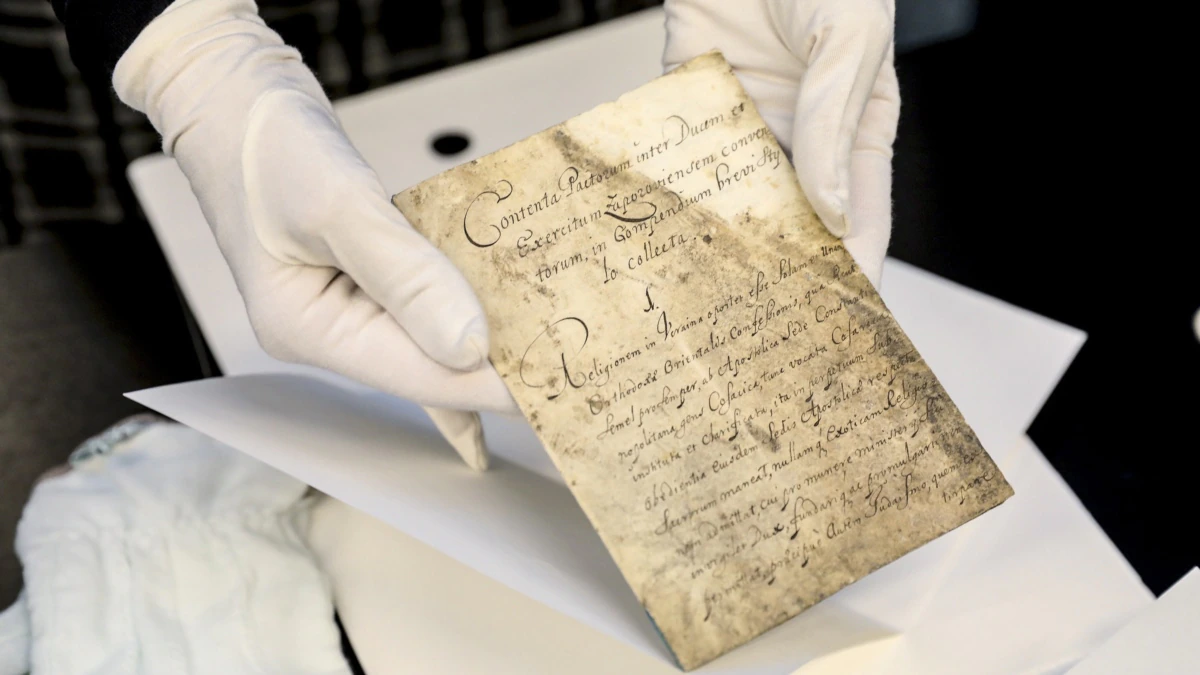 Contenta Pactorum inter Ducem et
Exercitum Zaporoviensem conven
torum, in Compendium brevi Sty
lo collecta.
1.
Religionem in Ucraina oportet esse Solam et Unam
Orthodoxæ Orientalis Confessionis, qua
semel pro semper, ab Apostolica Sede Constanti
nopolitana gens Cosacica, tunc vocata Cosar
instituta et clarificata, ita in perpetuum sub
obedientia eiusdem Sedis Apostolicæ
maneat, nullamq Exoticam Religio
non admittat, cui pro munere
Dux, fundari, ac promulgari
præcipuè autem Iudaismo, quem